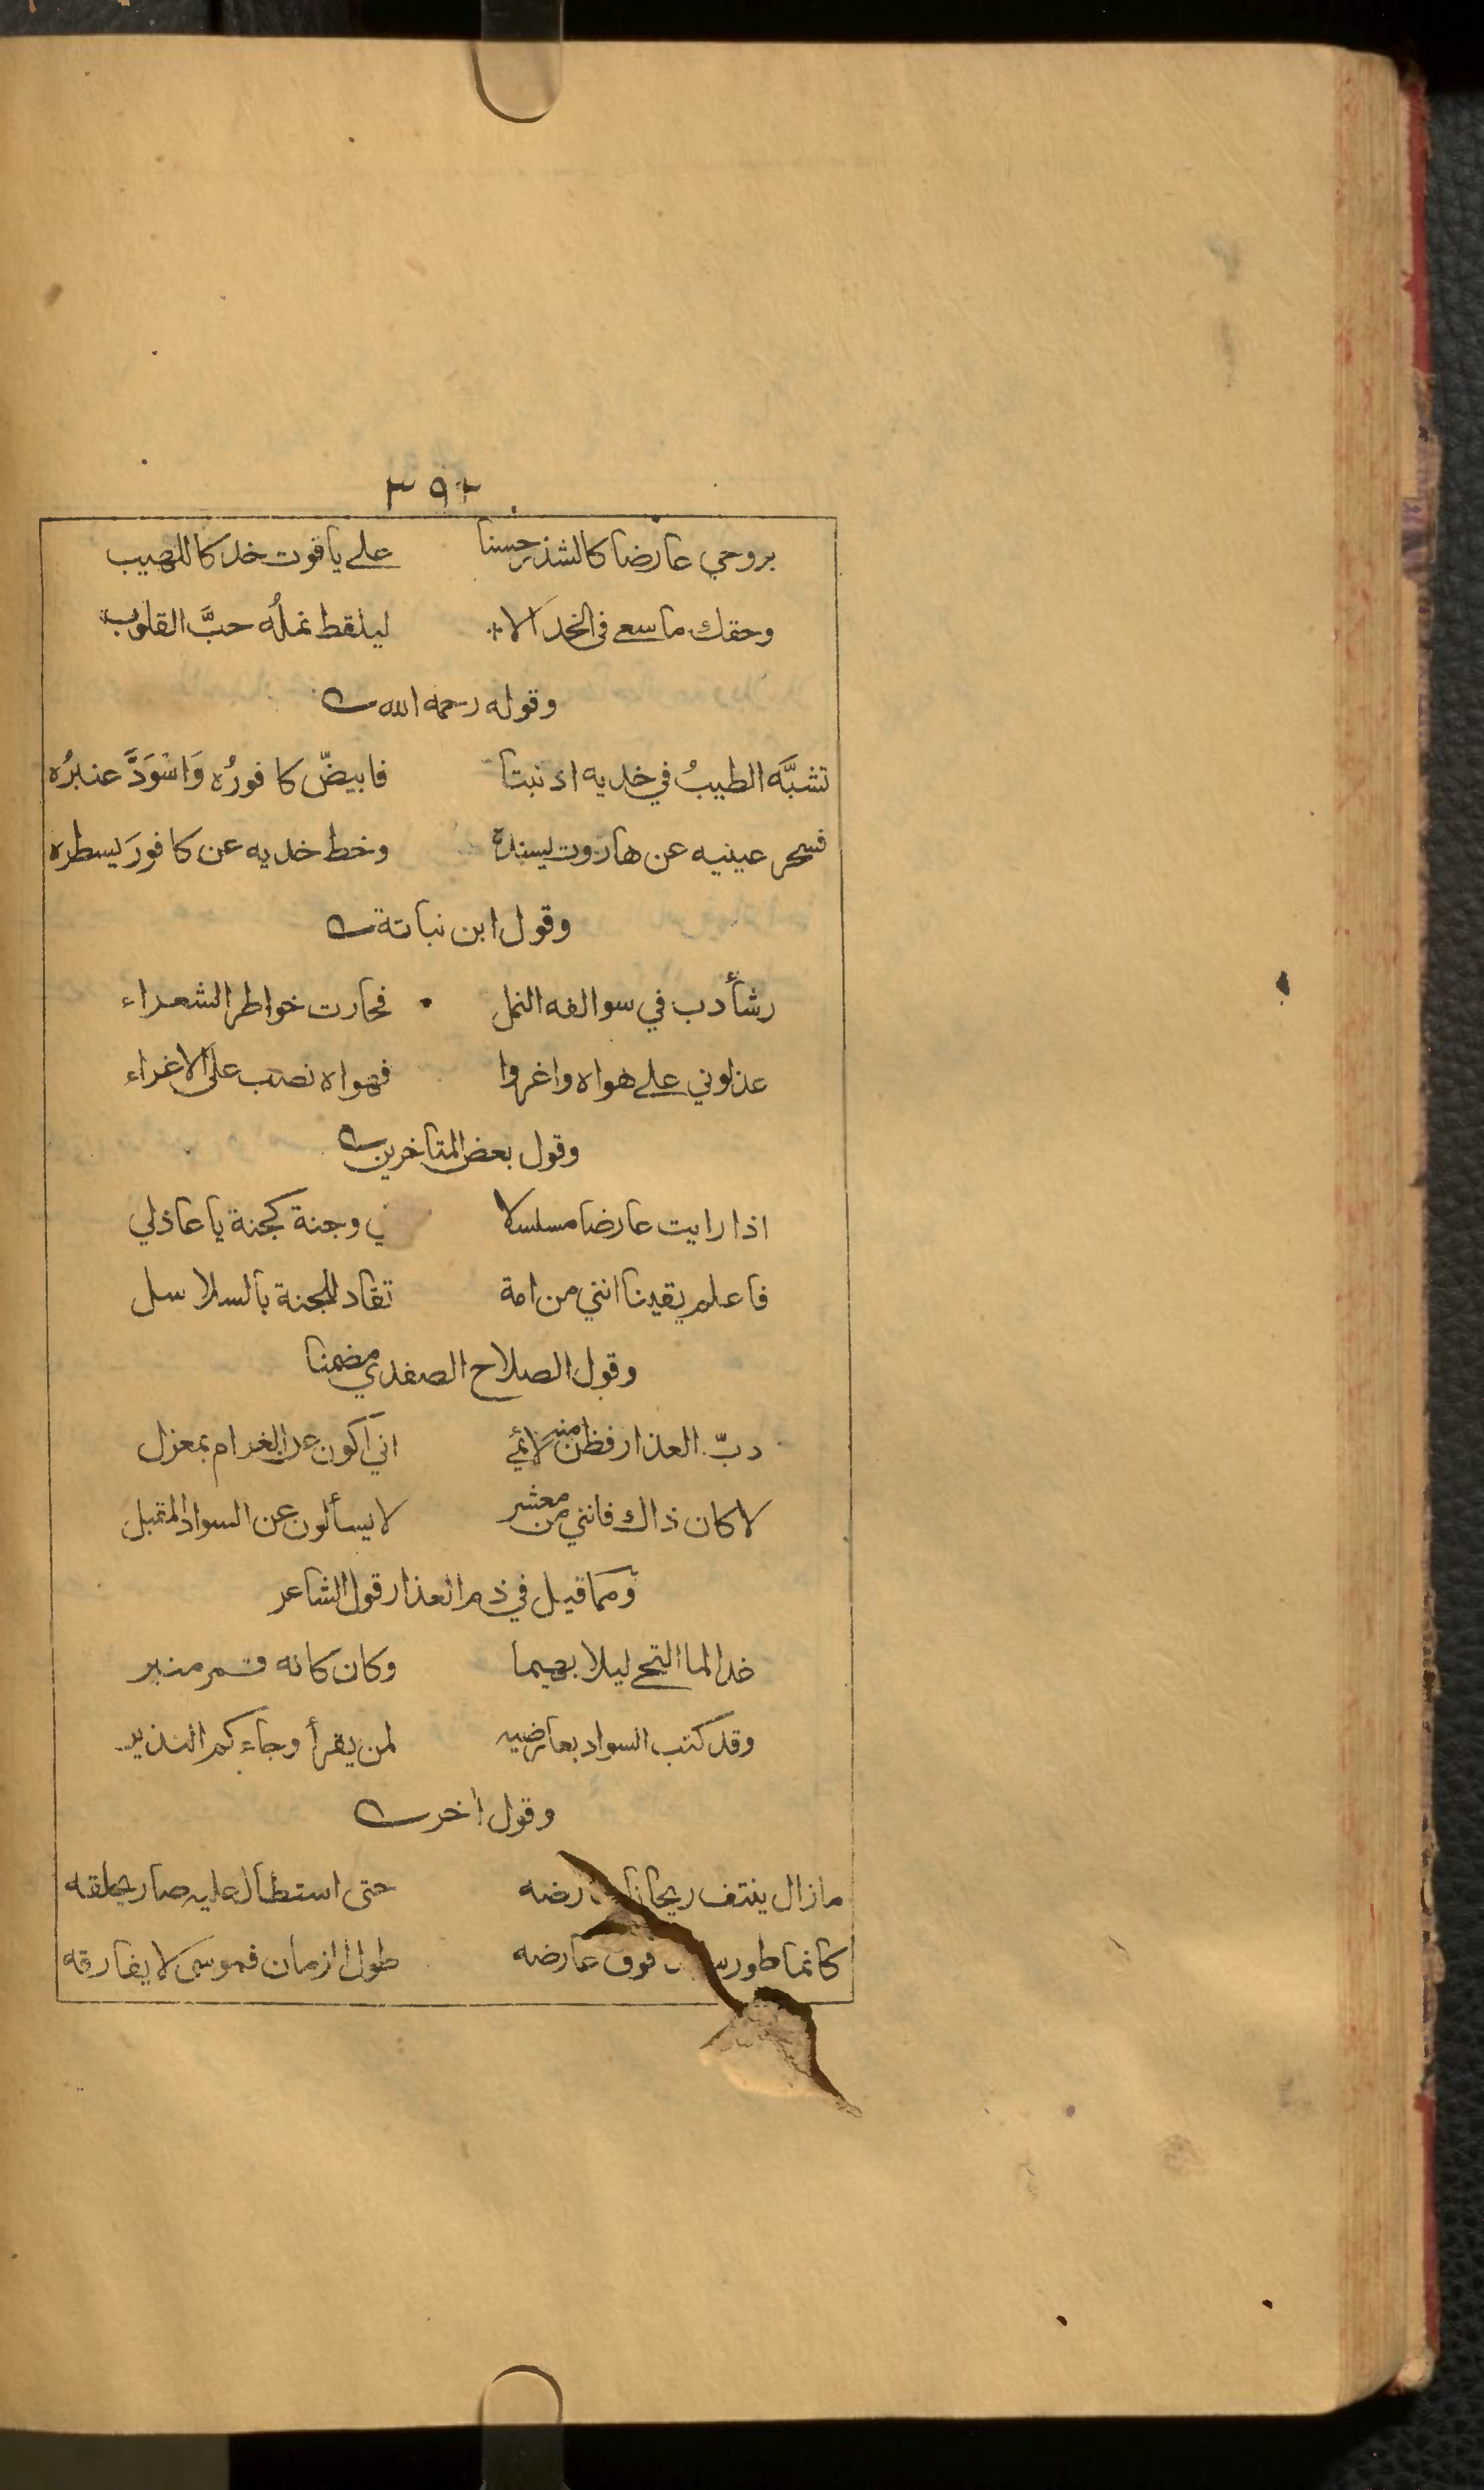 ٣٩٢
بروحي عارضا كالشذر حسنا على ياقوت خد كاللهيب
وحقك ما سعى في الخد الا ليلقط نملُه حبَّ القلوب
وقوله رحمه الله
تشبَّه الطيبُ في خديه اذ نبتا فابيضّ كافورُه وَاسْوَدَّ عنبرُه
فسحر عينيه عن هاروت يسنده وخط خديه عن كافور يسطره
وقول ابن نباتة
رشأ دب في سوالفه النمل فحارت خواطر الشعراء
عذلوني على هواه واغروا فهواه نصب على الاغراء
وقول بعض المتاخرين
اذا رايت عارضا مسلسلا وجنة كجنة يا عاذلي
فاعلم يقينا انني من امة تقاد للجنة بالسلاسل
وقول الصلاح الصفدي مضمنا
دبّ العذار فظن منه لائمي اني اكون عن الغرام بمعزل
لا كان ذاك فانني من معشر لا يسألون عن السواد المقبل
ومما قيل في ذم العذار قول الشاعر
غدا لما التحى ليلا بهيما وكان كانه قمر منير
وقد كتب السواد بعارضيه لمن يقرأ وجاءكم النذير
وقول اخر
ما زال ينتف ريحان حتى استطال عليه صار يحلقه
كانما طور فوق عارضه طول الزمان فموسى لا يفارقه